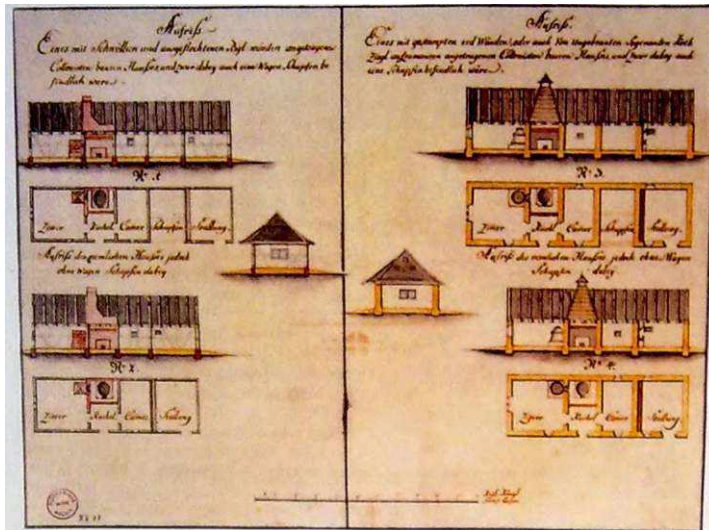 Aufriß.
Eines mit Schwellen und ausgeflochtenen Rigl wänden angetragenen
Collonisten bauren Hauses, und zwar dabey auch eine Wagen Schupfen be
findlich wäre.
N: 1.
Zimer Kuchel Camer Schupfen Stallung
Aufriß des nemlichen Hauses jedoch
ohne Wagen Schupfen dabey
N: 2.
Zimer Kuchel Camer Stallung
Aufriß.
Eines mit gestampten erd Wänden, oder auch Von Ungebranten Sogenanten Koth
Zigl angetragenen Collonisten bauren Hauses, und zwar dabey auch
eine Schupfen befindlich wäre.
N: 3.
Zimer Kuchel Camer Schupfen Stallung
Aufriß des nemlichen Hauses jedoch ohne Wagen
Schupfen dabey
N: 4.
Zimer Kuchel Camer Stallung